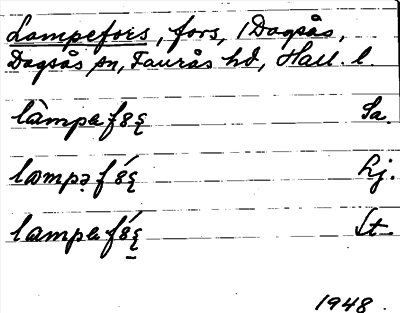 Lampefors, fors, i Dagsås,
Dagsås sn, Faurås hd, Hall. l.
Sa.
Lj.
St.
1948.